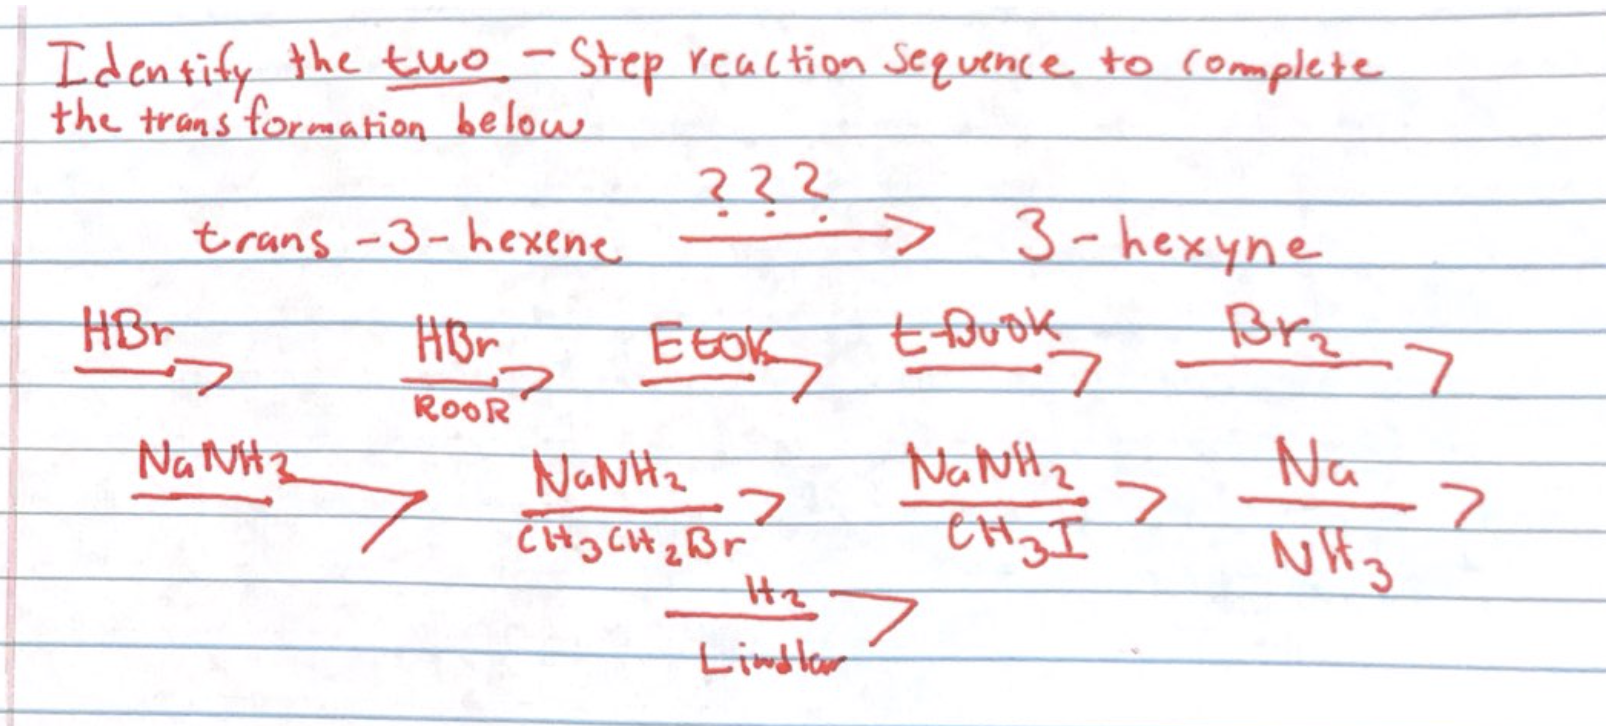 Identify the two - Step reaction sequence to complete
the transformation below
? ? ?
trans - 3 - hexene → 3 - hexyne
HBr HBr EtOK t-BuOK Br₂
ROOR
NaNH₂ NaNH₂ NaNH₂ Na
CH₃CH₂Br CH₃I NH₃
H₂
Lindlar